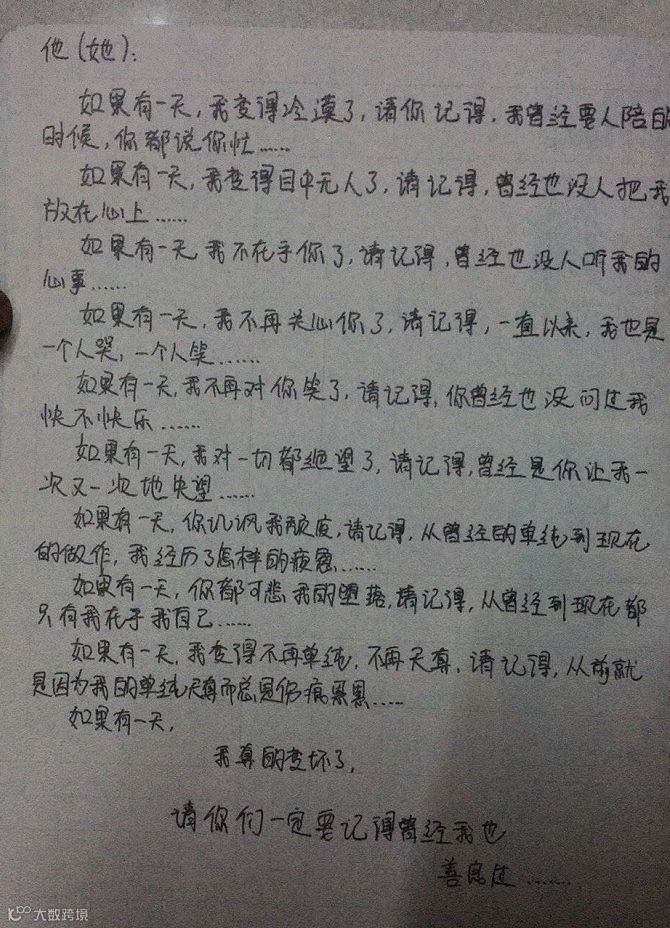 他(她):
如果有一天,我变得冷漠了,请你记得,我曾经要人陪的
时候,你都说你忙......
如果有一天,我变得目中无人了,请记得,曾经也没人把我
放在心上......
如果有一天我不在乎你了,请记得,曾经也没人听我的
心事......
如果有一天,我不再关心你了,请记得,一直以来,我也是
一个人哭,一个人笑......
如果有一天,我不再对你笑了,请记得,你曾经也没问过我
快不快乐......
如果有一天,我对一切都绝望了,请记得,曾经是你让我一
次又一次地失望......
如果有一天,你讥讽我颓废,请记得,从曾经的单纯到现在
的做作,我经历了怎样的疲惫......
如果有一天,你都可悲我的堕落,请记得,从曾经到现在都
只有我在乎我自己......
如果有一天,我变得不再单纯,不再天真,请记得,从前就
是因为我的单纯天真而总是伤痕累累......
如果有一天,
我真的变坏了,
请你们一定要记得曾经我也
善良过......
大数跨境